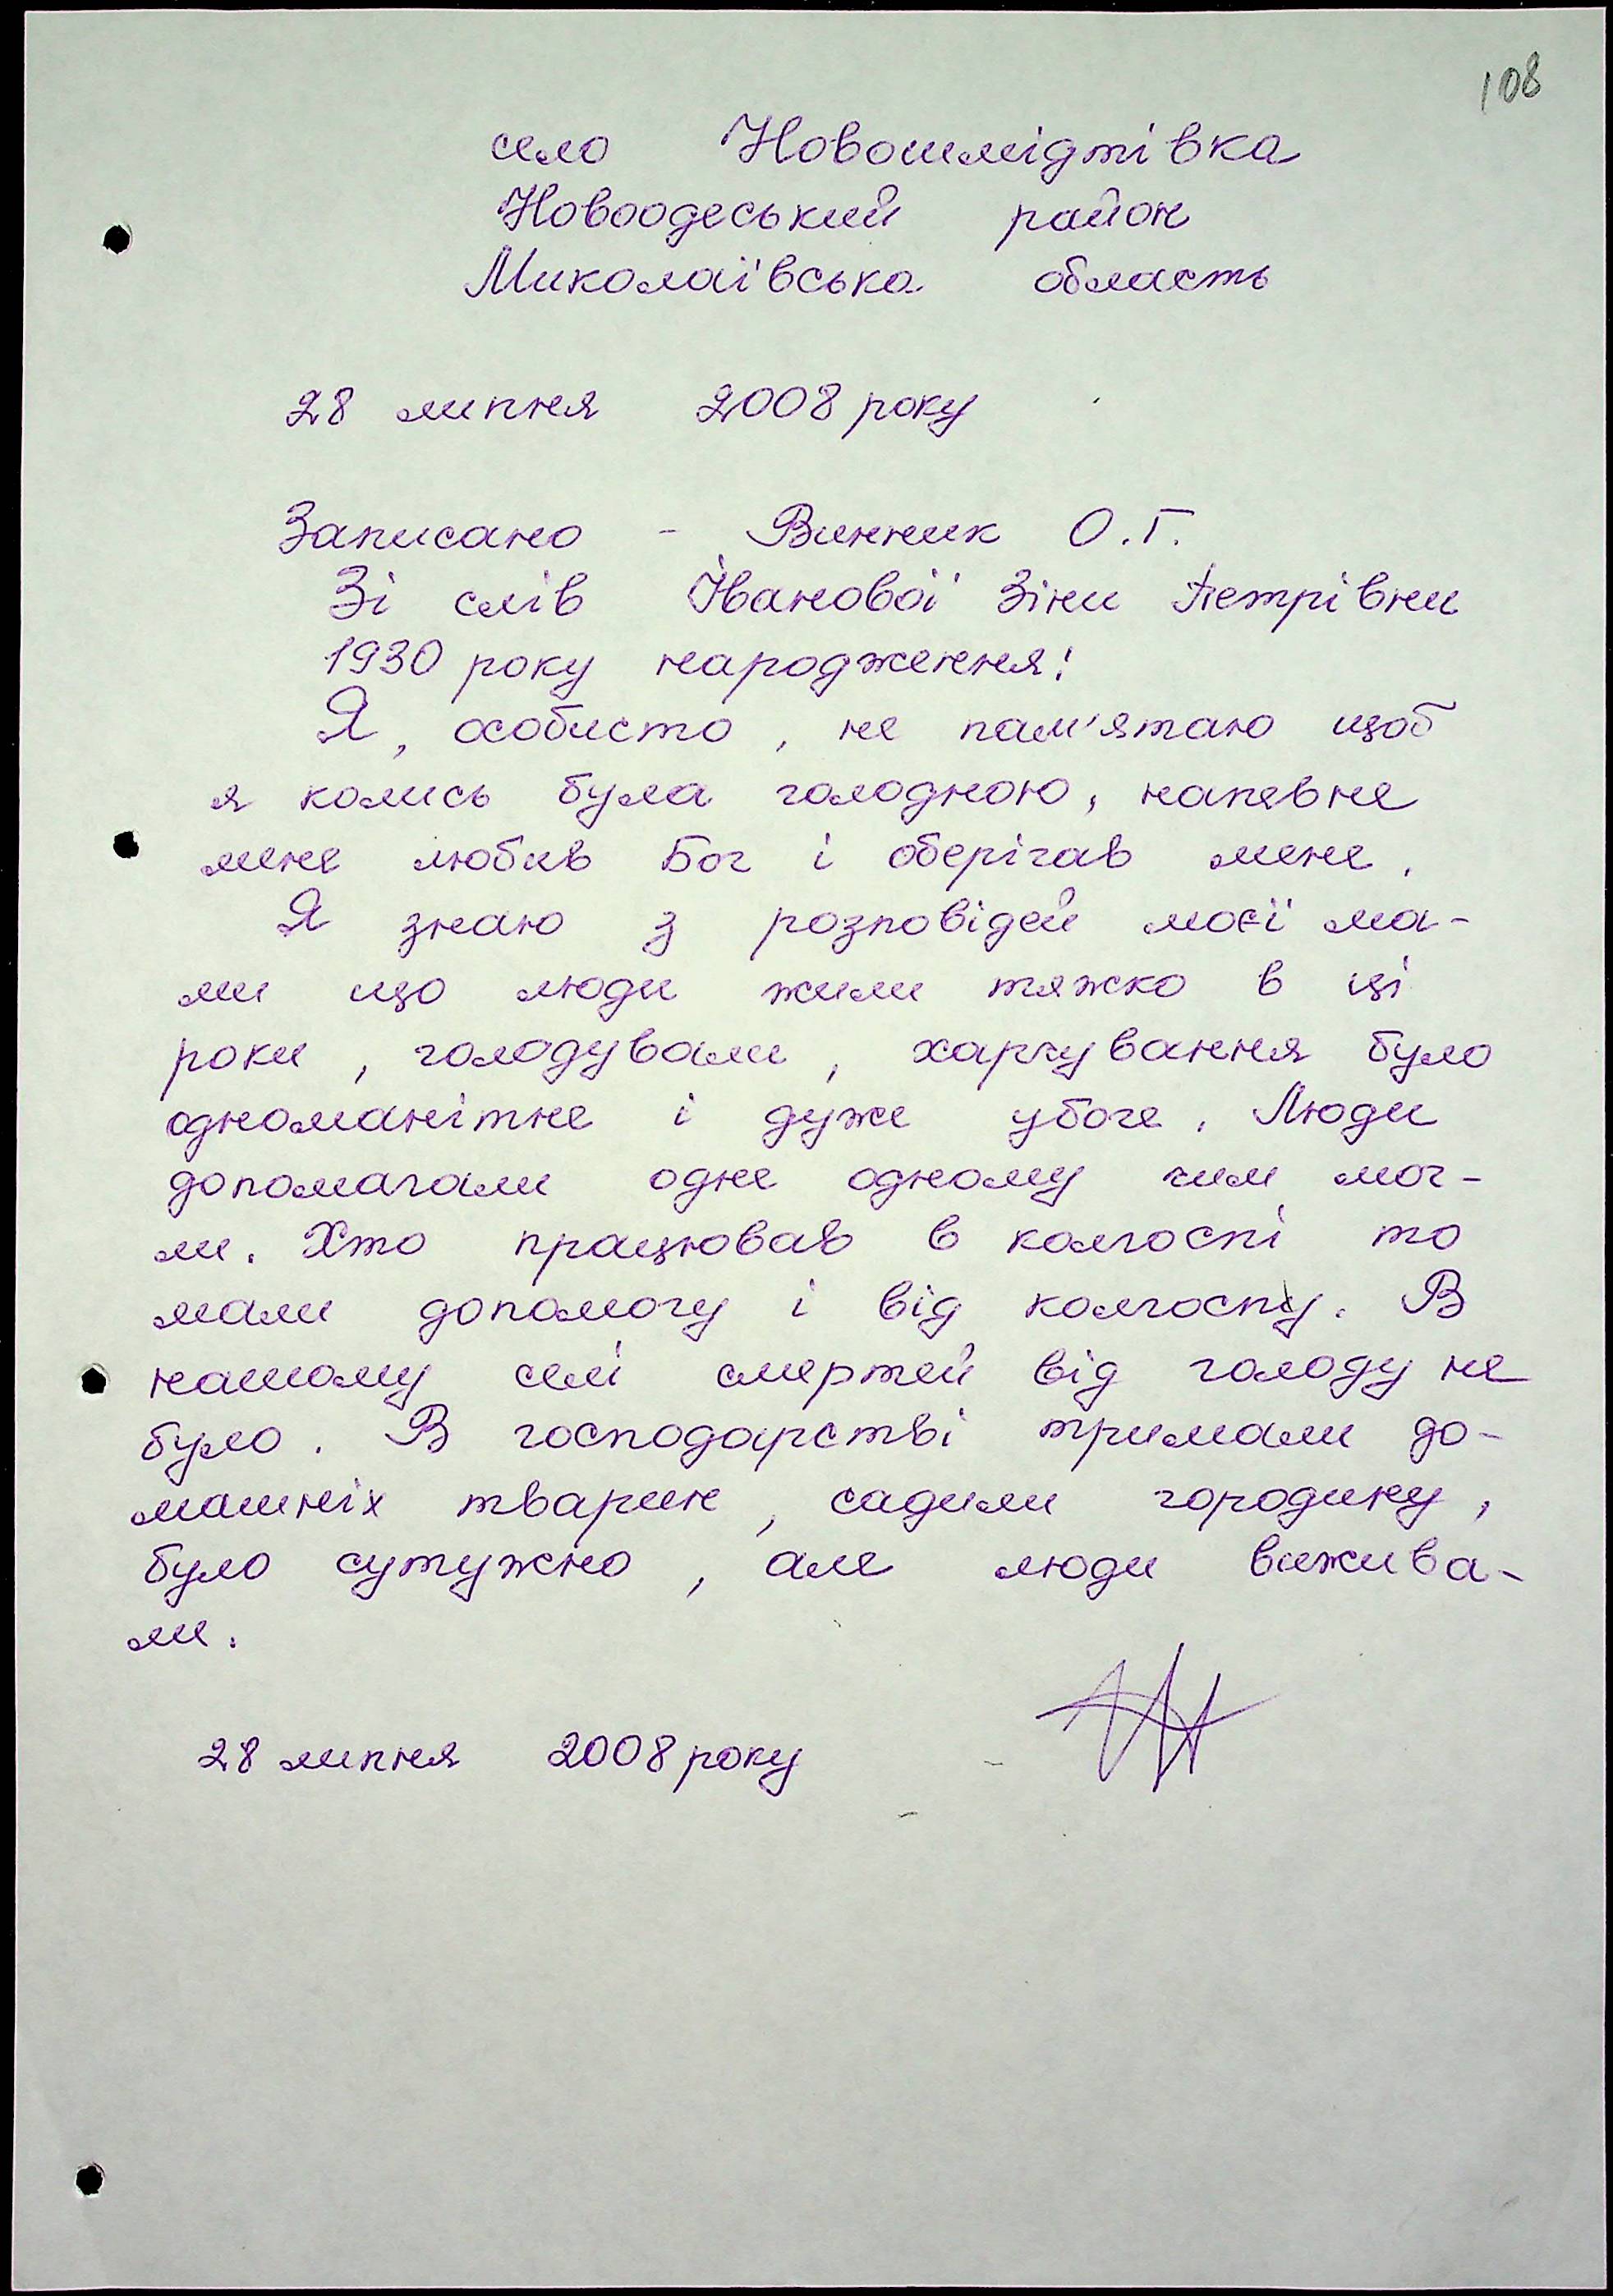 108
село Новошмідтівка
Новоодеський район
Миколаївська область
28 липня 2008 року
Записано - Винник О.Г.
Зі слів Іванової Зіни Петрівни
1930 року народження:
Я, особисто, не пам'ятаю щоб
я колись була голодною, напевне
мене любив Бог і оберігав мене.
Я знаю з розповідей моєї ма-
ми що люди жили тяжко в ці
роки, голодували, харчування було
одноманітне і дуже убоге. Люди
допомагали одне одному чим мог-
ли. Хто працював в колгоспі то
мали допомогу і від колгоспу. В
нашому селі смертей від голоду не
було. В господарстві тримали до-
машніх тварин, садили городину,
було сутужно, але люди вижива-
ли.
28 липня 2008 року -